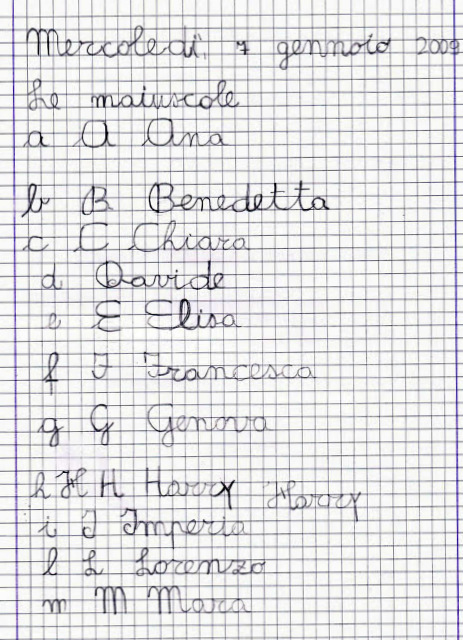 Mercoledì, 7 gennaio 2009
Le maiuscole
a A Ana
b B Benedetta
c C Chiara
d Davide
e E Elisa
f F Francesca
g G Genova
h H H Harry Harry
i I Imperia
l L Lorenzo
m M Mara